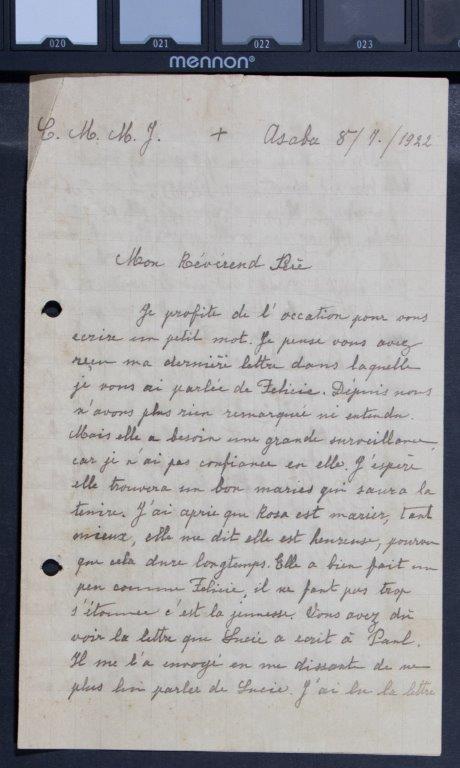 020 021 022 023
mennon®
C. M. M. J. + Asaba 8/7./1922
Mon Révérend Père
Je profite de l'occation pour vous
ecrire un petit mot. Je pense vous avez
reçu ma dernière lettre dans laquelle
je vous ai parlée de Felicie. Dépuis nous
n'avons plus rien remarquée ni entendu.
Mais elle a besoin une grande surveillance,
car je n'ai pas confiance en elle. J'espère
elle trouvera un bon maries qui saura la
tenire. J'ai aprie que Rosa est marier, tant
mieux, elle me dit elle est heureuse, pourvu
que cela dure longtemps. Elle a bien fait un
peu comme Felicie, il ne faut pas trop
s'étonner c'est la jeunesse. Vous avez dû
voir la lettre que Lucie a ecrit à Paul.
Il me l'a envoyé en me dissant de ne
plus lui parler de Lucie. J'ai lu la lettre